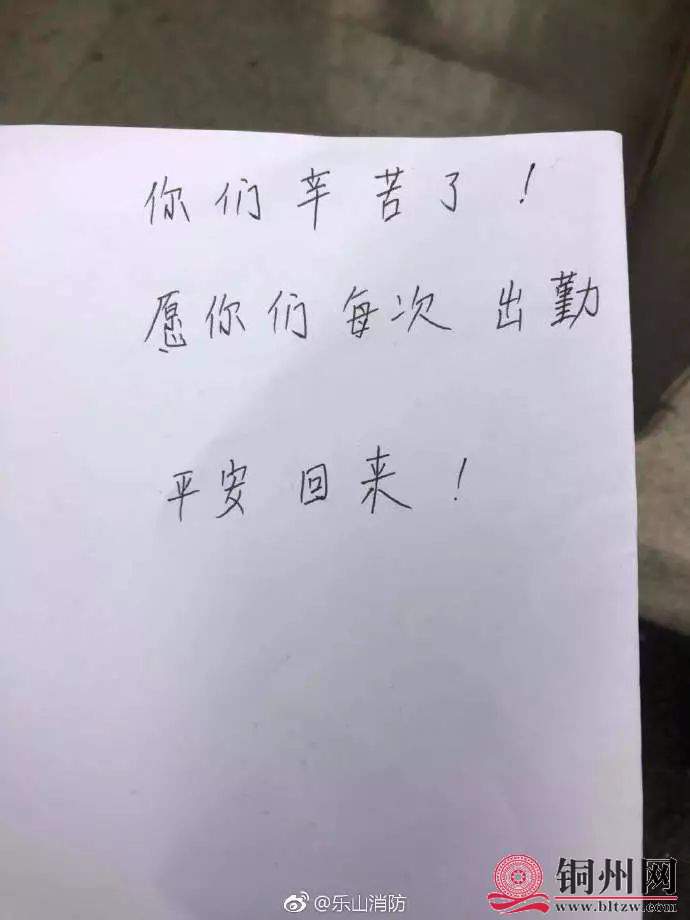 你们辛苦了！
愿你们每次出勤
平安回来！
@乐山消防
铜州网
www.bltzw.com